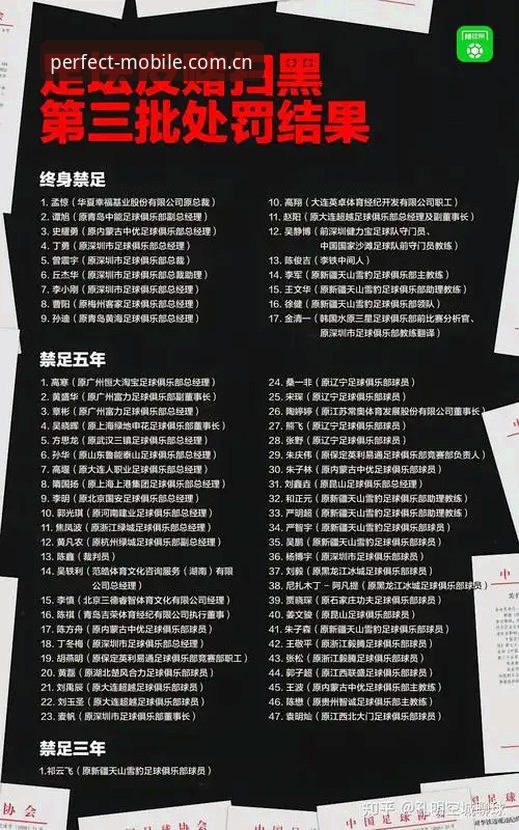 perfect-mobile.com.cn
足坛反赌扫黑
第三批处罚结果
终身禁足
1. 孟惊（华夏幸福基业股份有限公司原总裁）
2. 谭旭（原青岛中能足球俱乐部副总经理）
3. 史耀勇（原内蒙古中优足球俱乐部总经理）
4. 丁勇（原深圳市足球俱乐部总经理）
5. 曾震宇（原深圳市足球俱乐部总裁）
6. 丘杰华（原深圳市足球俱乐部总裁助理）
7. 李小刚（原深圳市足球俱乐部总经理）
8. 曹阳（原梅州客家足球俱乐部总经理）
9. 孙迪（原青岛黄海足球俱乐部总经理）
10. 高翔（大连英卓体育经纪开发有限公司职工）
11. 赵阳（原大连超越足球俱乐部总经理及副董事长）
12. 吴静博（前深圳健力宝足球队守门员、
中国国家沙滩足球队前守门员教练）
13. 陈俊吉（李铁中间人）
14. 李军（原新疆天山雪豹足球俱乐部主教练）
15. 王文华（原新疆天山雪豹足球俱乐部助理教练）
16. 徐健（原新疆天山雪豹足球俱乐部领队）
17. 金清一（韩国水原三星足球俱乐部前比赛分析官、
原深圳市足球俱乐部教练翻译）
禁足五年
1. 高寒（原广州恒大淘宝足球俱乐部总经理）
2. 黄盛华（原广州富力足球俱乐部副董事长）
3. 章彬（原广州富力足球俱乐部总经理）
4. 吴晓晖（原上海绿地申花足球俱乐部董事长）
5. 方思龙（原武汉三镇足球俱乐部总经理）
6. 孙华（原山东鲁能泰山足球俱乐部总经理）
7. 高堰（原大连人职业足球俱乐部总经理）
8. 隋国扬（原上海上港集团足球俱乐部总经理）
9. 李明（原北京国安足球俱乐部总经理）
10. 郭光琪（原河南建业足球俱乐部总经理）
11. 焦凤波（原浙江绿城足球俱乐部总经理）
12. 黄凡农（原杭州绿城足球俱乐部副总经理）
13. 陈鑫（裁判员）
14. 吴轶利（范皓体育文化咨询服务（湖南）有限
公司总经理）
15. 李慎（北京三德睿智体育文化有限公司经理）
16. 陈祺（青岛吉荣体育经纪有限公司执行董事）
17. 陈方舟（原内蒙古中优足球俱乐部球员）
18. 丁冬梅（原深圳市足球俱乐部总经理）
19. 胡燕明（原保定英利易通足球俱乐部竞赛部职工）
20. 黄磊（原湖北楚风合力足球俱乐部球员）
21. 刘禹辰（原大连超越足球俱乐部球员）
22. 刘玉圣（原大连超越足球俱乐部球员）
23. 麦帆（原深圳市足球俱乐部董事长）
24. 桑一非（原辽宁足球俱乐部球员）
25. 宋琛（原辽宁足球俱乐部球员）
26. 陶婷婷（原江苏常奥体育发展股份有限公司董事长）
27. 熊飞（原辽宁足球俱乐部球员）
28. 张野（原辽宁足球俱乐部球员）
29. 朱庆伟（原保定英利易通足球俱乐部竞赛部负责人）
30. 朱子林（原内蒙古中优足球俱乐部球员）
31. 刘鑫垚（原昆山足球俱乐部总经理）
32. 和正元（原新疆天山雪豹足球俱乐部助理教练）
33. 严明超（原新疆天山雪豹足球俱乐部助理教练）
34. 严智宇（原新疆天山雪豹足球俱乐部球员）
35. 吴鹏（原新疆天山雪豹足球俱乐部球员）
36. 杨博宇（原深圳市足球俱乐部球员）
37. 刘毅（原黑龙江冰城足球俱乐部球员）
38. 尼扎木丁－阿凡提（原黑龙江冰城足球俱乐部球员）
39. 贾晓琛（原石家庄功夫足球俱乐部球员）
40. 姜文骏（原昆山足球俱乐部球员）
41. 朱子森（原新疆天山雪豹足球俱乐部球员）
42. 王敬平（原浙江毅腾足球俱乐部球员）
43. 张松（原浙江毅腾足球俱乐部球员）
44. 郭子超（原江西联盛足球俱乐部球员）
45. 王波（原内蒙古中优足球俱乐部主教练）
46. 陈懋（原贵州智诚足球俱乐部主教练）
47. 袁明灿（原江西北大门足球俱乐部球员）
禁足三年
1.祁云飞（原新疆天山雪豹足球俱乐部球员）
知乎 @孔明空城聊球